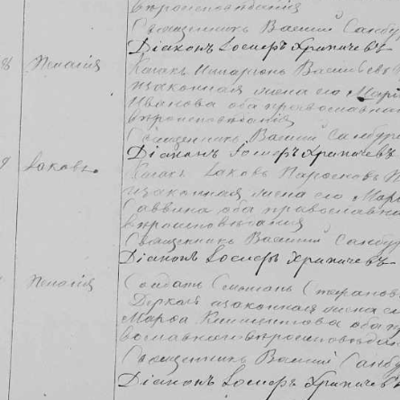 вѣроисповѣданія
Священникъ Василій Самбур
Діаконъ Іосифъ Хрипачевъ
8 Пелагія Козакъ Иларіонъ Васильевъ
и законная жена его Марі
Иванова оба православнаго
вѣроисповѣданія
Священникъ Василій Самбур
Діаконъ Іосифъ Хрипачевъ
Іаковъ Козакъ Іаковъ
и законная жена его Мар
Саввина оба православн
вѣроисповѣданія
Священникъ Василій Самбур
Діаконъ Іосифъ Хрипачевъ
Пелагія Солдатъ Симеонъ Стефановъ
и законная жена е
Марфа Климентова оба пр
вославнаго вѣроисповѣдан
Священникъ Василій Самбу
Діаконъ Іосифъ Хрипачевъ